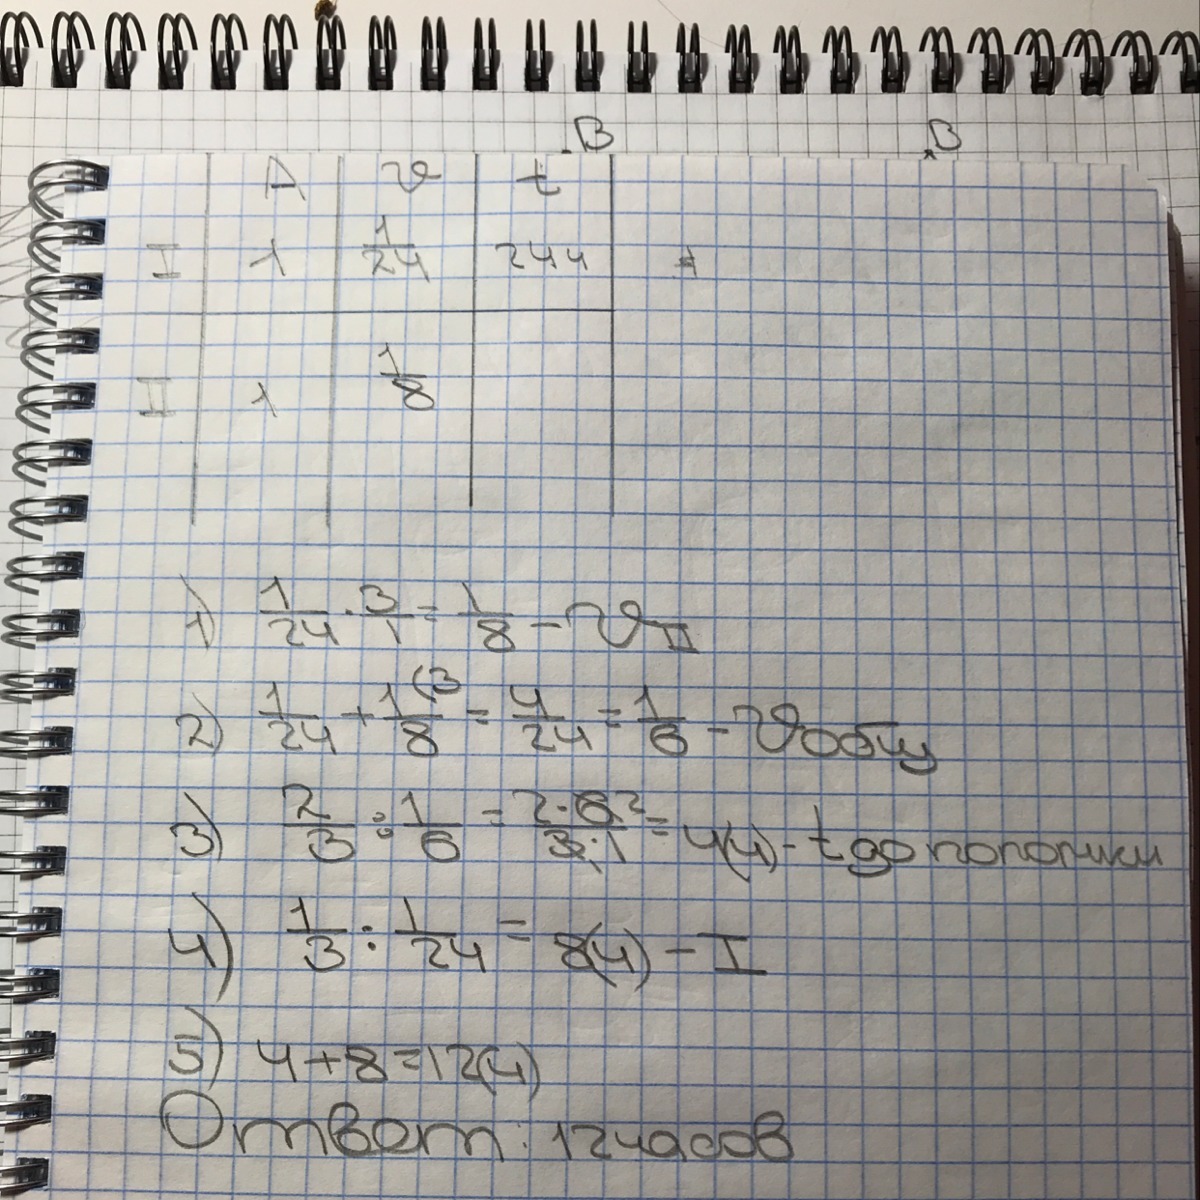 B B
A v t
I 1 1/24 24ч =
II 1 1/8
1) 1/24 · 3/1 = 1/8 - v II
2) 1/24 + 1/8 (3 = 4/24 = 1/6 - v общ
3) 2/3 : 1/6 = 2·6 2/3·1 = 4(ч) - t до поломки
4) 1/3 : 1/24 = 8(ч) - I
5) 4+8=12(ч)
Ответ: 12часов